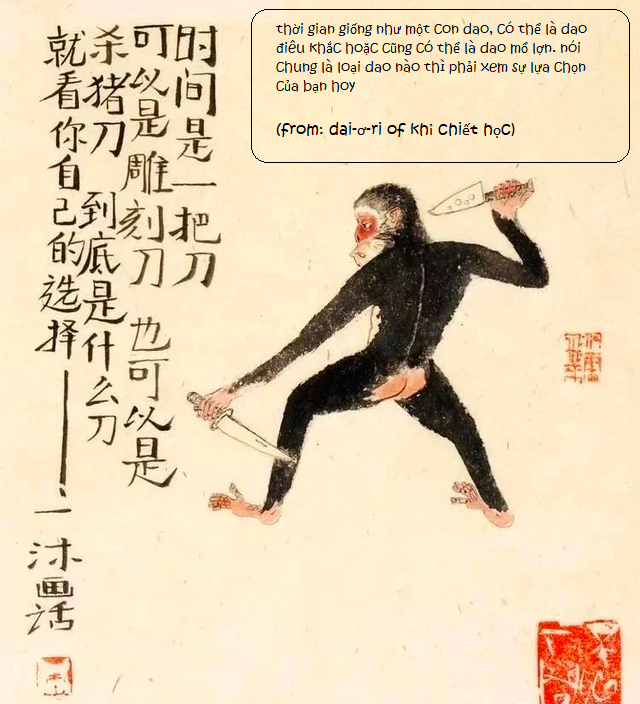 thời gian giống như một con dao, có thể là dao
điêu khắc hoặc cũng có thể là dao mổ lợn. nói
chung là loại dao nào thì phải xem sự lựa chọn
của bạn hoy
(from: dai-ơ-ri of khỉ chiết học)
时间是一把刀
可以是雕刻刀 也可以是
杀猪刀 到底是什么刀
就看你自己的选择——一沐画话